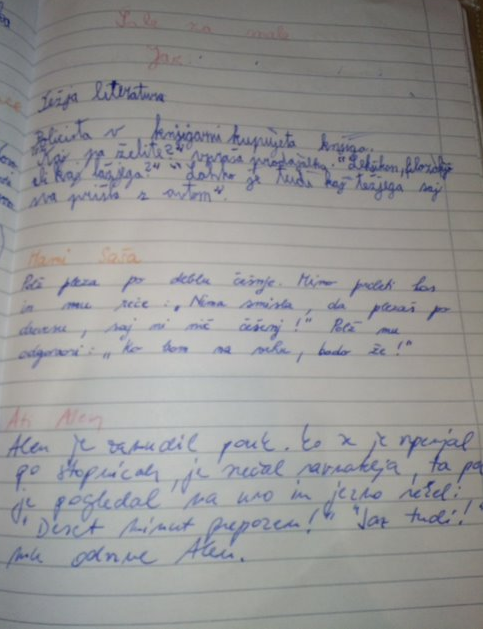 Šale za male
Jaz
Težja literatura
Policista v knjigarni kupujeta knjigo.
"Kaj pa želite?" vpraša prodajalka. "Leksikon, filozofijo
ali kaj lažjega?" "Lahko je tudi kaj težjega saj
sva prišla z avtom".
Mami Saša
Polž pleza po deblu češnje. Mimo prileti kos
in mu reče: „Nima smisla, da plezaš po
drevesu, saj ni nič češenj!" Polž mu
odgovori: „Ko bom na vrhu, bodo že!"
Ati Alen
Alen je zamudil pouk. Ko se je vzpenjal
po stopnicah, je srečal ravnatelja, ta pa
je pogledal na uro in jezno rekel:
"Deset minut prepozen!" "Jaz tudi!"
mu odvrne Alen.